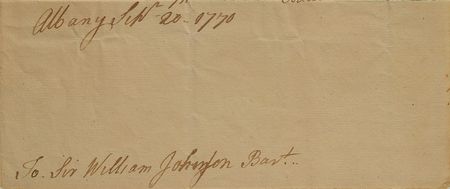 Albany Sepr. 20. 1770
To Sir William Johnson Bart.